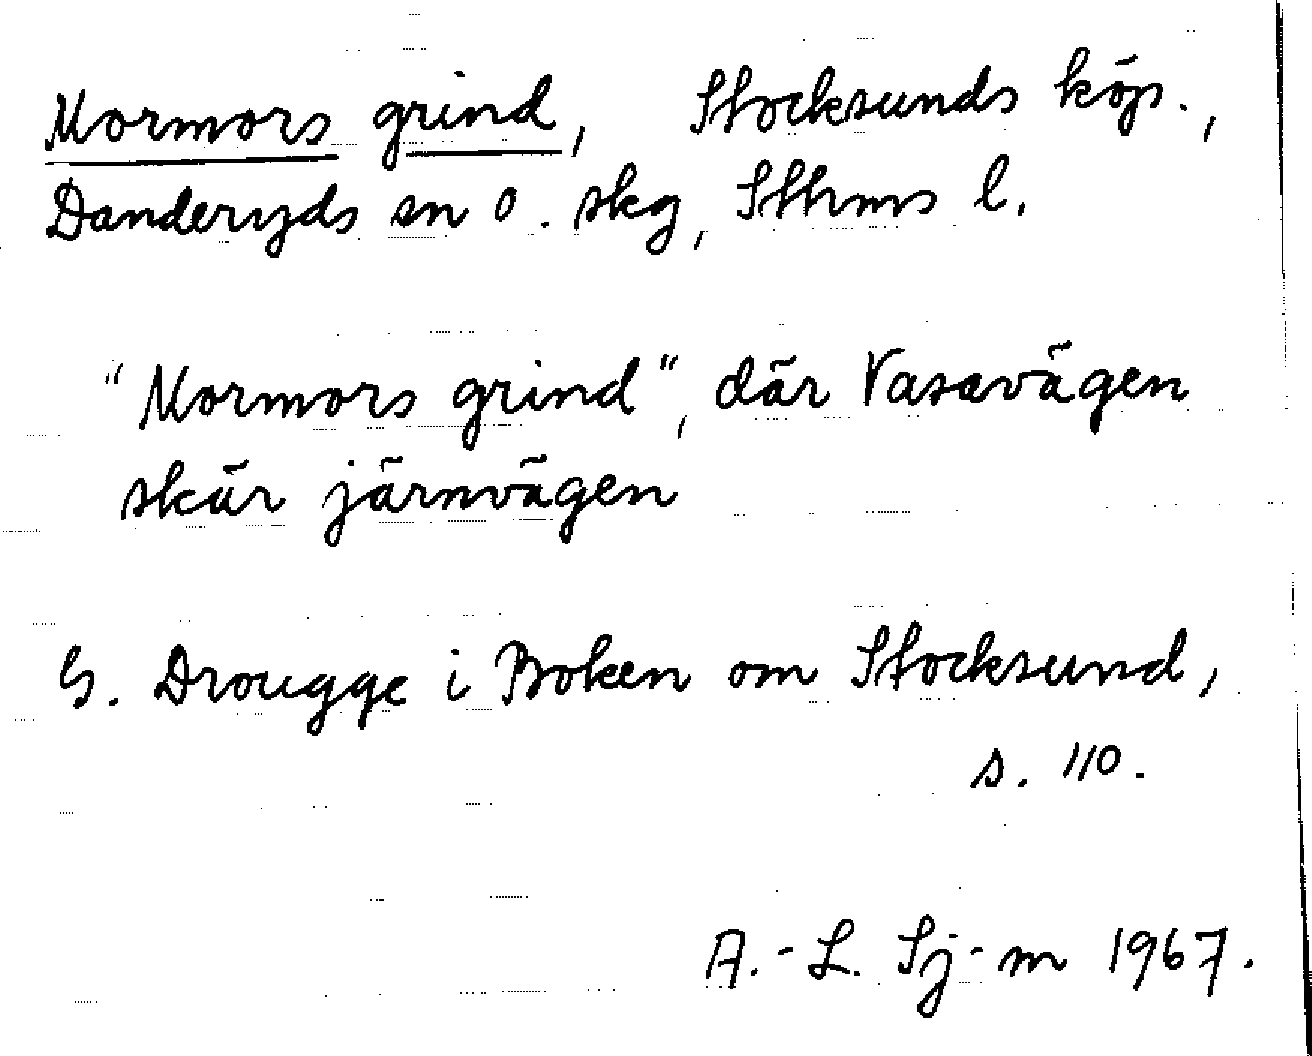 Mormors grind, Stocksunds köp.,
Danderyds sn o. skg, Sthms l.
"Mormors grind", där Vasavägen
skär järnvägen
G. Drougge i Boken om Stocksund,
s. 110.
A.-L. Sj-m 1967.